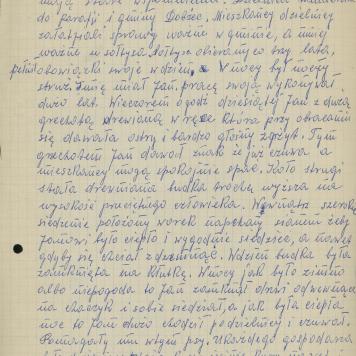 do parafii i gminy Dobrze. Mieszkańcy dzielnicy
załatwiali sprawy ważne w gminie, a mniej
ważne u sołtysa. Sołtysa obierano co trzy lata,
pełnił obowiązki swoje w dzień, a w nocy był nocny
stróż. Imię miał Jan, pracę swoją wykonywał
dużo lat. Wieczorem o godz dziesiątej Jan z dużą
grzechotą drewnianą w ręce która przy obracaniu
się dawała ostry i bardzo głośny zgrzyt. Tym
grzechotem Jan dawał znak że już czuwa a
mieszkańcy mogą spokojnie spać. Koło strugi
stała drewniana budka trochę wyższa na
wysokość przeciętnego człowieka. Wewnątrz szerokie
siedzenie położony worek napchany sianem żeby
Janowi było ciepło i wygodnie siedzieć, a nawet
gdyby się chciał zdrzemnąć. W dzień budka była
zamknięta na kłódkę. W nocy jak było zimno
albo niepogoda to Jan zamknął drzwi od wewnątrz
na haczyk i sobie siedział, a jak była ciepła
noc to Jan dużo chodził po dzielnicy i czuwał.
Pomagały mu w tym psy. U każdego gospodarza